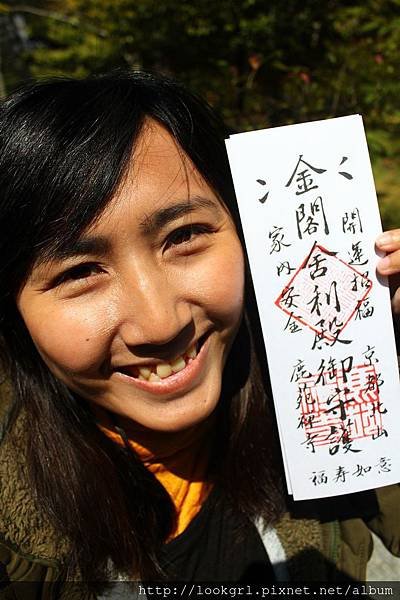 開運招福 京都北山
金閣舎利殿御守護
家内安全 鹿苑禅寺
福寿如意
http://lookgrl.pixnet.net/album